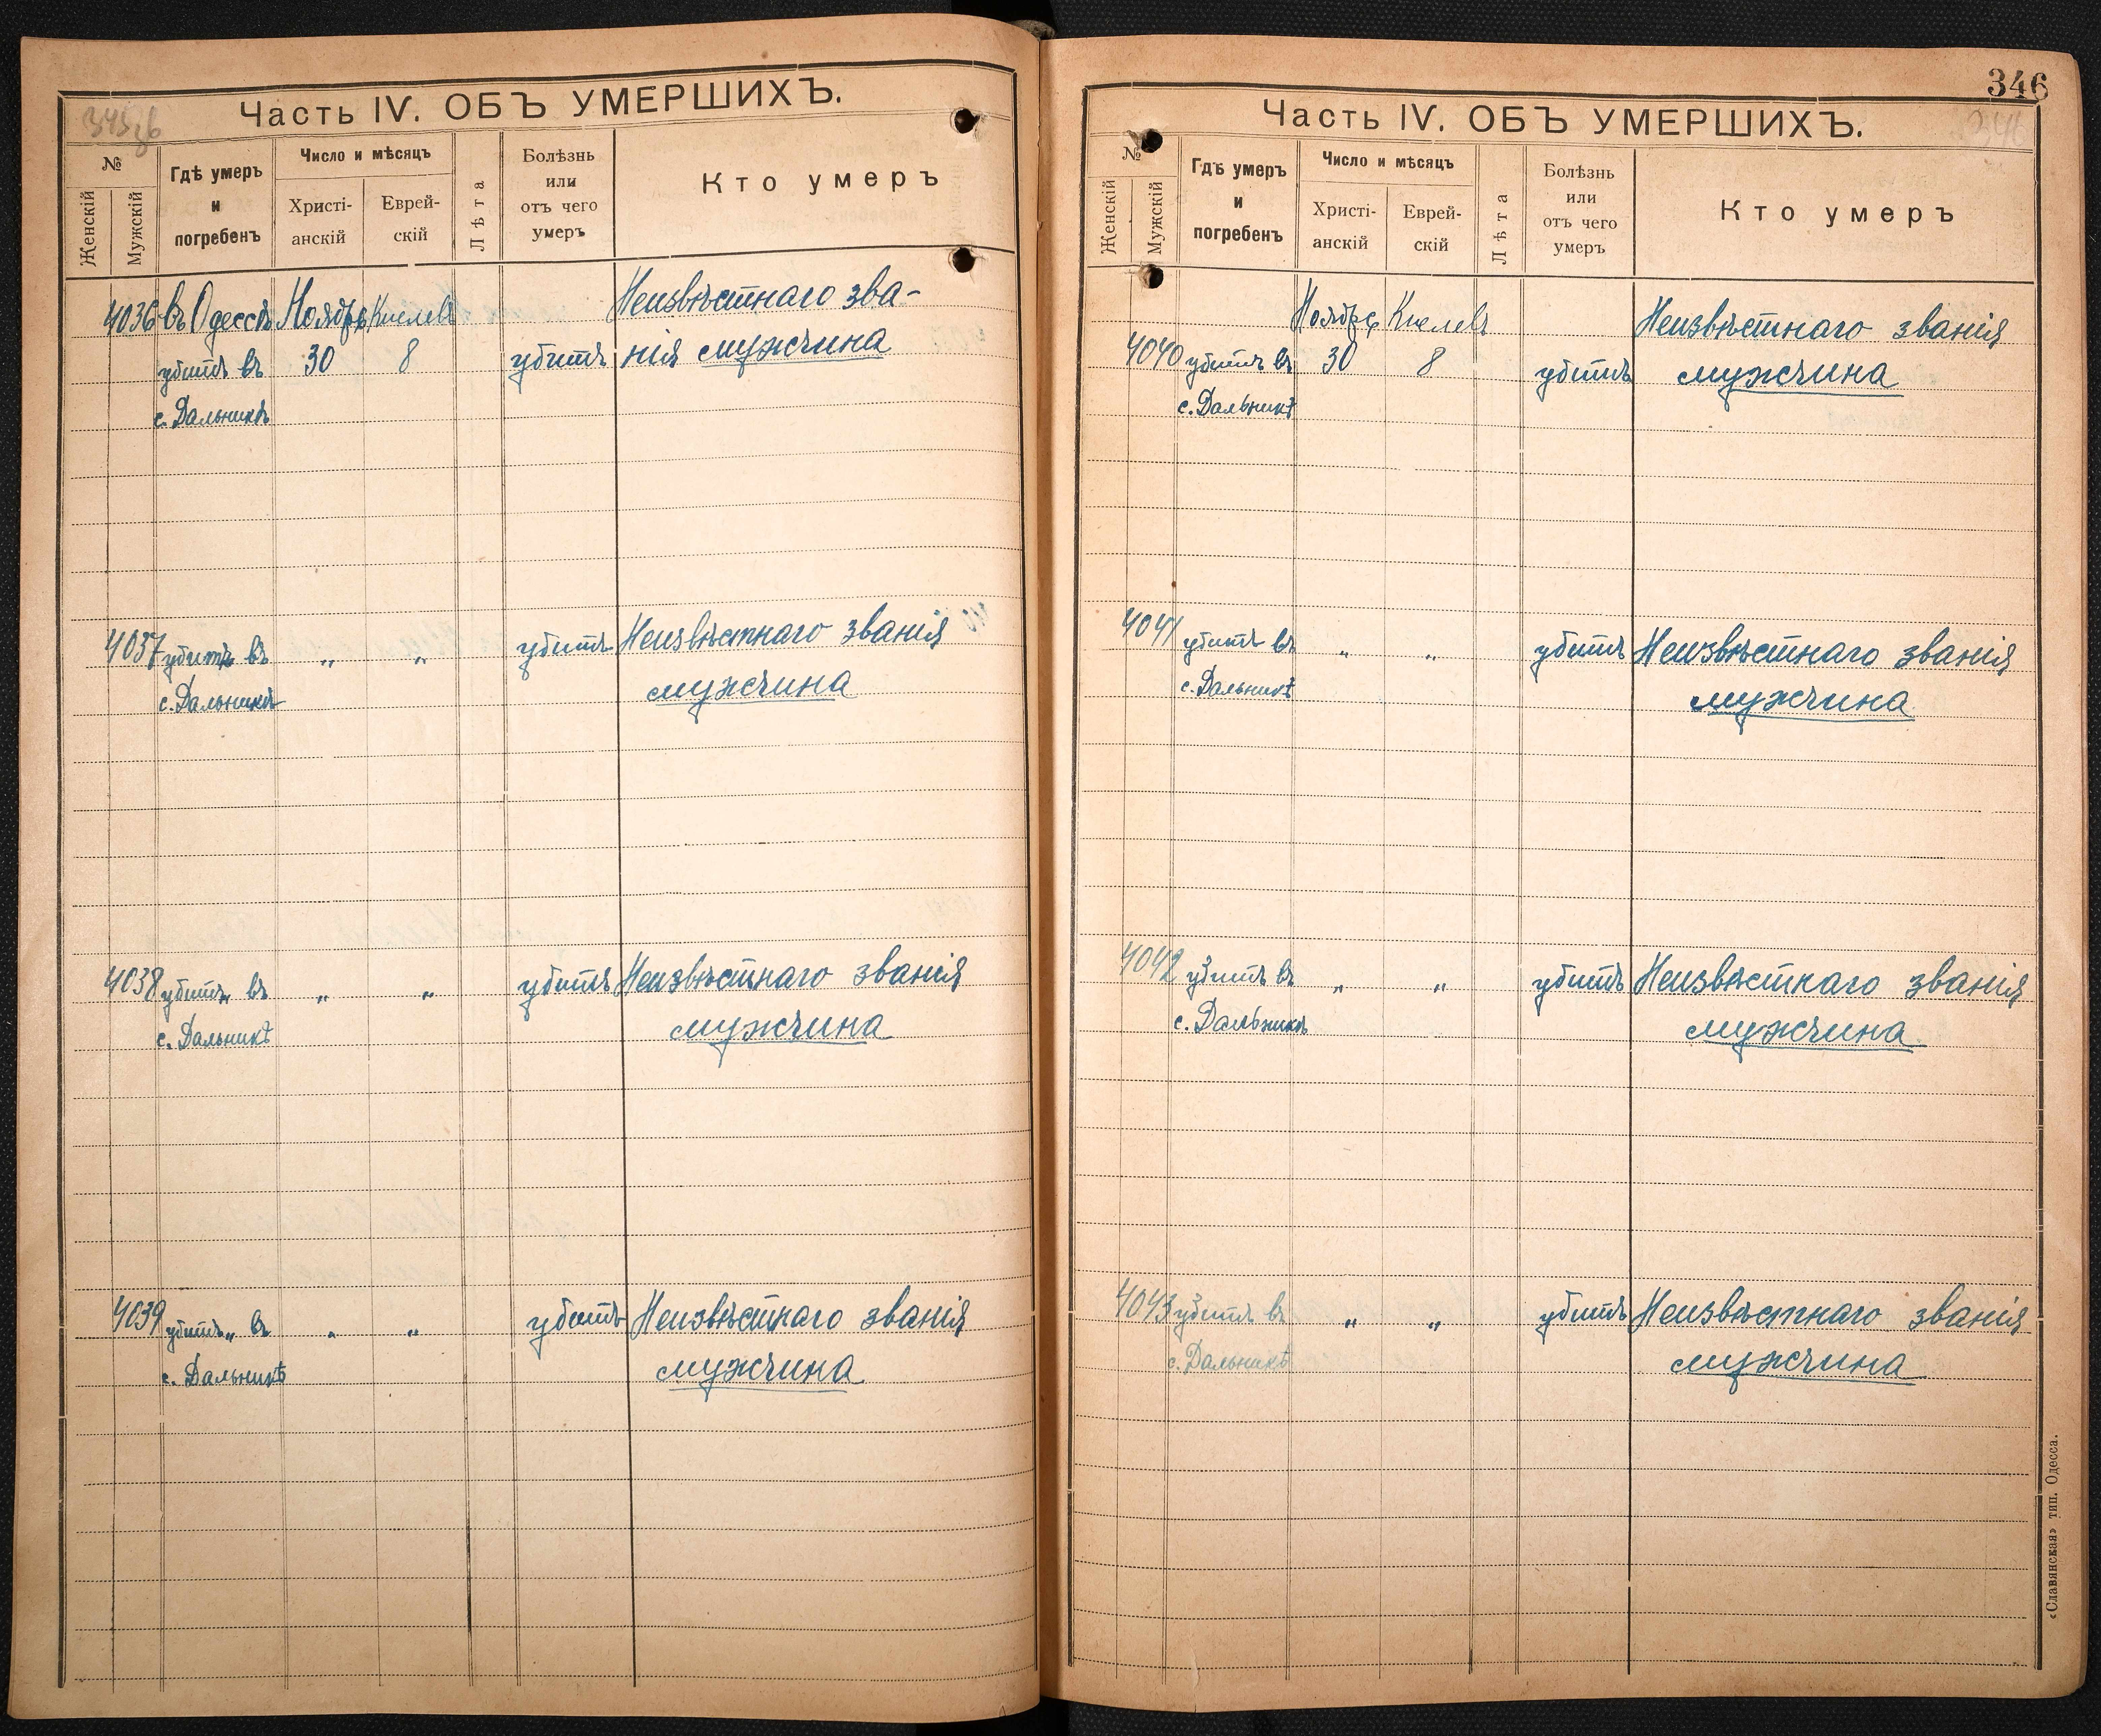 345 об
Часть IV. ОБЪ УМЕРШИХЪ.
№
Женскій
Мужскій
Гдѣ умеръ
и
погребенъ
Число и мѣсяцъ
Христі-
анскій
Еврей-
скій
Лѣта
Болѣзнь
или
отъ чего
умеръ
Кто умеръ
4036 въ Одессѣ Ноябрь Кислевъ Неизвѣстнаго зва-
убитъ въ 30 8 убитъ нія мужчина
с. Дальникѣ
4037 убитъ въ „ „ убитъ Неизвѣстнаго званія
с. Дальникѣ мужчина
4038 убитъ въ „ „ убитъ Неизвѣстнаго званія
с. Дальникѣ мужчина
4039 убитъ въ „ „ убитъ Неизвѣстнаго званія
с. Дальникѣ мужчина
346
346
Часть IV. ОБЪ УМЕРШИХЪ.
№
Женскій
Мужскій
Гдѣ умеръ
и
погребенъ
Число и мѣсяцъ
Христі-
анскій
Еврей-
скій
Лѣта
Болѣзнь
или
отъ чего
умеръ
Кто умеръ
Ноябрь Кислевъ Неизвѣстнаго званія
4040 убитъ въ 30 8 убитъ мужчина
с. Дальникѣ
4041 убитъ въ „ „ убитъ Неизвѣстнаго званія
с. Дальникѣ мужчина
4042 убитъ въ „ „ убитъ Неизвѣстнаго званія
с. Дальникѣ мужчина
4043 убитъ въ „ „ убитъ Неизвѣстнаго званія
с. Дальникѣ мужчина
«Славянская» тип. Одесса.